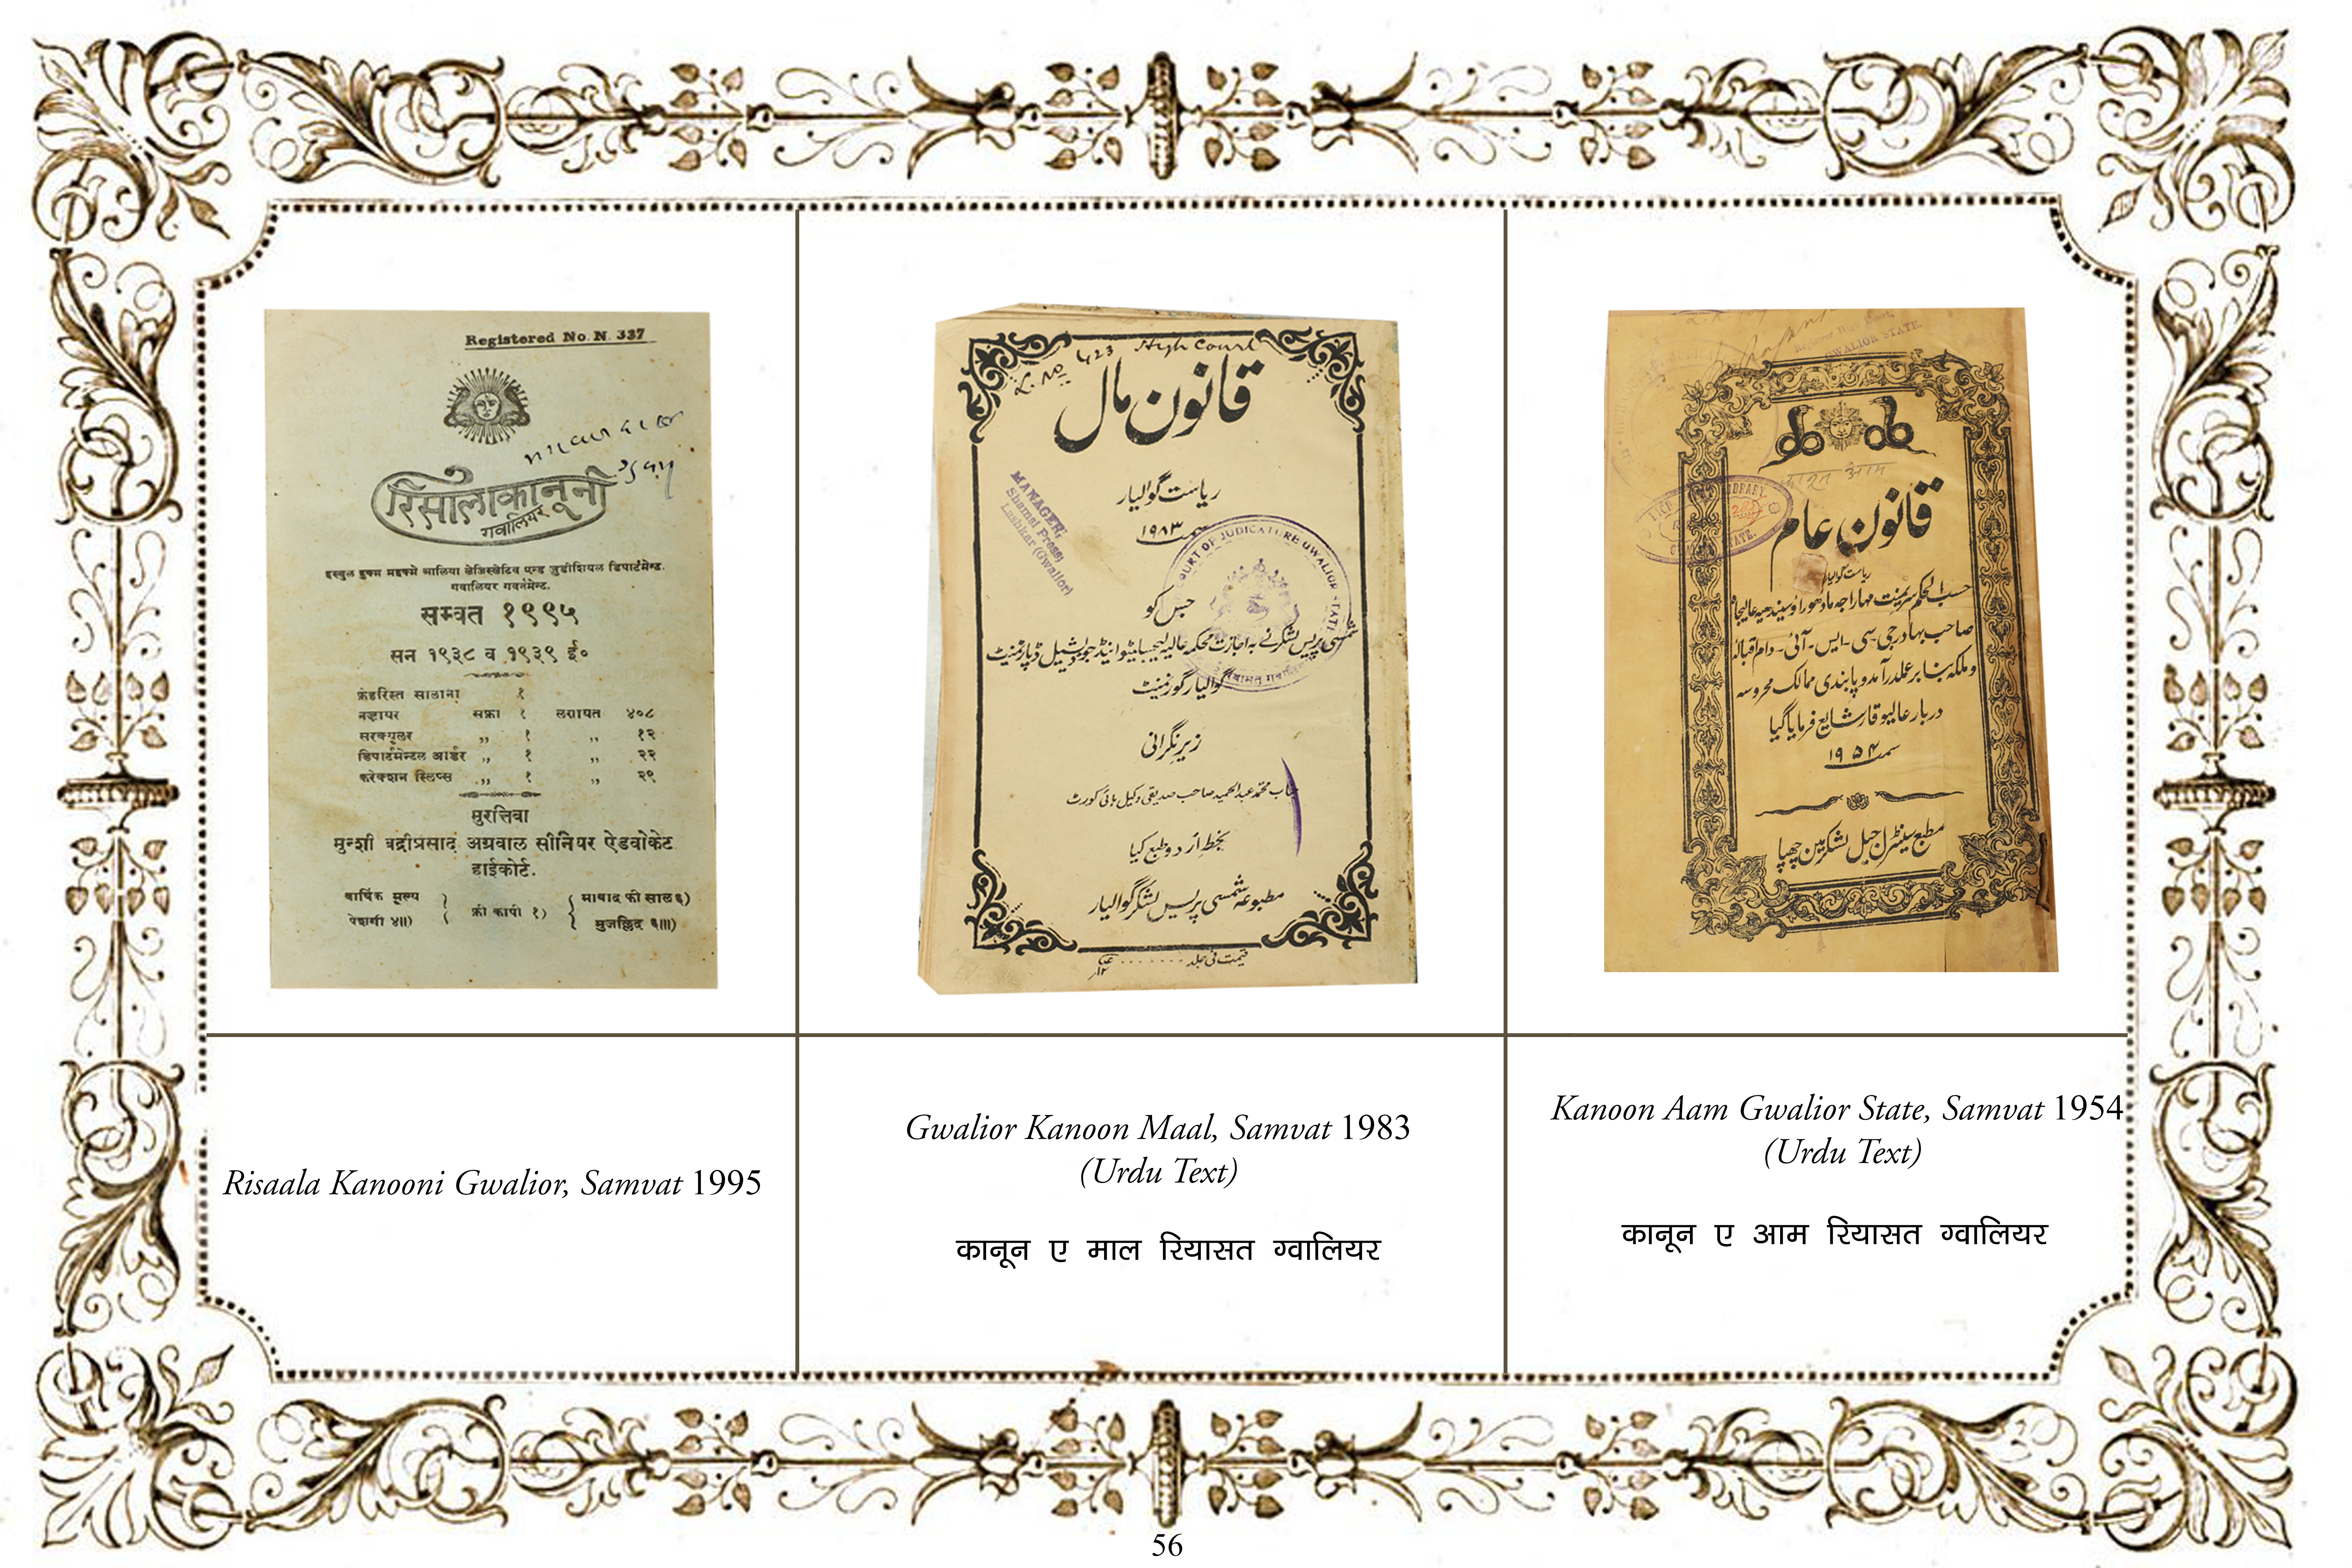 Registered No. N. 337
रिसाला कानूनी
गवालियर
हस्बुल हुक्म महक्मे आलिया लेजिस्लेटिव एन्ड जुडीशियल डिपार्टमेन्ट.
गवालियर गवर्नमेन्ट.
सम्वत १९९५
सन १९३८ व १९३९ ई०
फ़ेहरिस्त सालाना १
नज़ायर सफ़ा १ लग़ायत ४०८
सरक्यूलर ,, १ ,, १२
डिपार्टमेन्टल आर्डर ,, १ ,, २२
करेक्शन स्लिप्स ,, १ ,, २९
मुरत्तिबा
मुन्शी बद्रीप्रसाद अग्रवाल सीनियर ऐडवोकेट
हाईकोर्ट.
वार्षिक मूल्य
पेशगी ४॥)
फ़ी कापी १)
माबाद फी साल ६)
मुजल्लिद ६॥)
L. No 423 High Court
قانون مال
ریاست گوالیار
سمت ۱۹۸۳
MANAGER,
Shamsi Press,
Lashkar (Gwalior)
COURT OF JUDICATURE GWALIOR STATE
جس کو
شمسی پریس لشکر نے بہ اجازت محکمہ عالیہ لیجسلیٹیو اینڈ جوڈیشیل ڈپارٹمنٹ
گوالیار گورنمنٹ
زیر نگرانی
جناب محمد عبدالحمید صاحب صدیقی وکیل ہائی کورٹ
بخط اردو طبع کیا
مطبوعہ شمسی پریس لشکر گوالیار
قیمت فی جلد
GWALIOR STATE.
قانون عام
ریاست گوالیار
حسب الحکم سریمنت مہاراجہ مادھوراؤ سیندھیہ عالیجاہ
صاحب بہادر جی-سی-ایس-آئی-دام اقبالہ
وملکہ بنا بر عملدرآمد و پابندی ممالک محروسہ
دربار عالیوقار شایع فرمایا گیا
سمت ۱۹۵۴
مطبع سینٹرل جیل لشکر مین چھپا
Risaala Kanooni Gwalior, Samvat 1995
Gwalior Kanoon Maal, Samvat 1983
(Urdu Text)
कानून ए माल रियासत ग्वालियर
Kanoon Aam Gwalior State, Samvat 1954
(Urdu Text)
कानून ए आम रियासत ग्वालियर
56